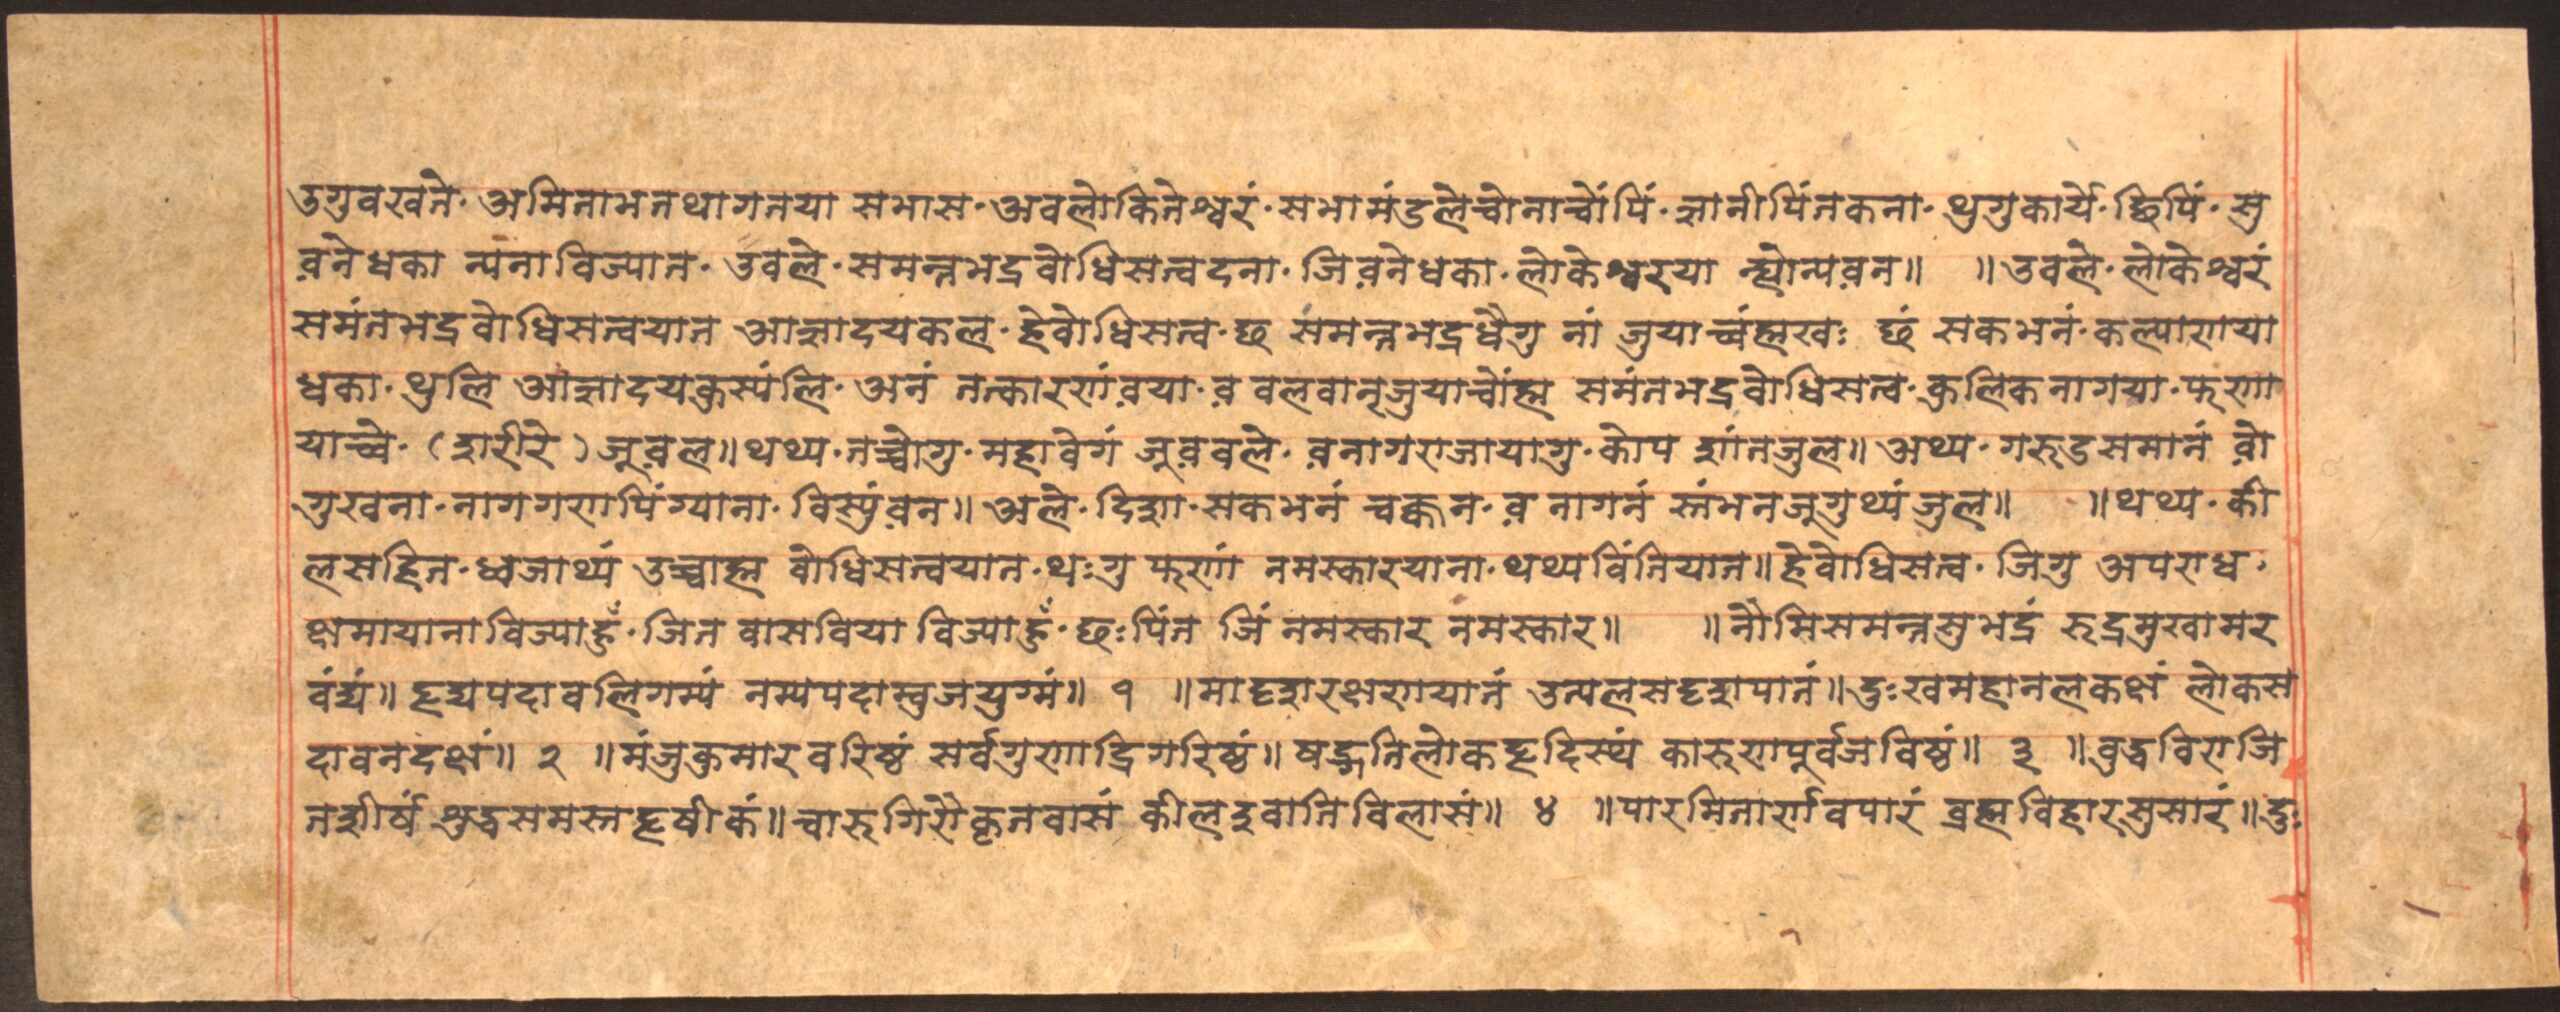 उगुवखते· अमिताभतथागतया सभास· अवलोकितेश्वरं· सभामंडलेचोनाचोंपिं· ज्ञानीपिंतकना· थुगुकार्ये· छिपिं· सु
व़नेधका न्यनाविज्यात· उवले· समन्तभद्रवोधिसत्वदना· जिव़नेधका· लोकेश्वरया न्ह्योन्यव़न॥ ॥उवले· लोकेश्वरं
समंतभद्रवोधिसत्वयात आज्ञादयकल· हेवोधिसत्व· छ समन्तभद्रधैगु नां जुयाच्वंह्मखः छं सकभनं· कल्याणया
धका· थुलि आज्ञादयकुस्यंलि· अनं तत्कारणंव़या· व़ वलवानृजुयाचोंह्म समंतभद्रवोधिसत्व· कुलिकनागया· फणा
याच्वे· (शरीरे) जूव़ल॥थथ्य· तच्चोगु· महावेगं जूव़वले· व़नागराजायागु· कोप शांतजुल॥ अथ्य· गरुडसमानं व़ो
गुखना· नागगणपिंग्याना· विस्युंव़न॥ अले· दिशा· सकभनं च्वक्कन· व़ नागनं स्तंभनजूगुथ्यंजुल॥ ॥थथ्य· की
लसहित· ध्वजाथ्यं उच्चाह्म वोधिसत्वयात· थःगु फणां नमस्कारयाना· थथ्यविंतियात॥हेवोधिसत्व· जिगु अपराध·
क्षमायानाविज्याहुँ· जित वासविया विज्याहुँ· छःपिंत जिं नमस्कार नमस्कार॥ ॥नौमिसमन्तसुभद्रं रुद्रमुखामर
वंद्यं॥ हृद्यपदावलिगम्यं नम्यपदाम्वुजयुग्मं॥ १ ॥मादृशरक्षणयानं उत्पलसदृशपानं॥दुःखमहानलकक्षं लोकस
दावनदक्षं॥ २ ॥मंजुकुमारवरिष्ठं सर्वगुणाद्रिगरिष्ठं॥ षड्गतिलोकहृदिस्थं कारुणपूर्वजविष्ठं॥ ३ ॥वुद्धविराजि
तशीर्षं शुद्धसमस्तहृषीकं॥ चारुगिरौकृतवासं कीलइवातिविलासं॥ ४ ॥पारमितार्णवपारं व्रह्मविहारसुसारं॥दुः